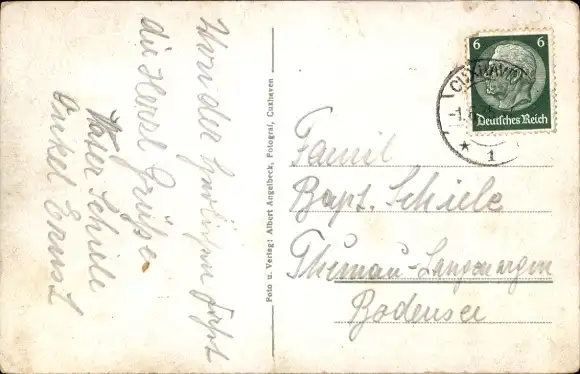 Von der herlichen Fahrt
die Herzl Grüße
Vater Schiele
Onkel Ernst
Foto u. Verlag: Albert Angelbeck, Fotograf, Cuxhaven
6 6
Deutsches Reich
CUXHAVEN
1
Famil
Bapt. Schiele
Langenargen
Bodensee